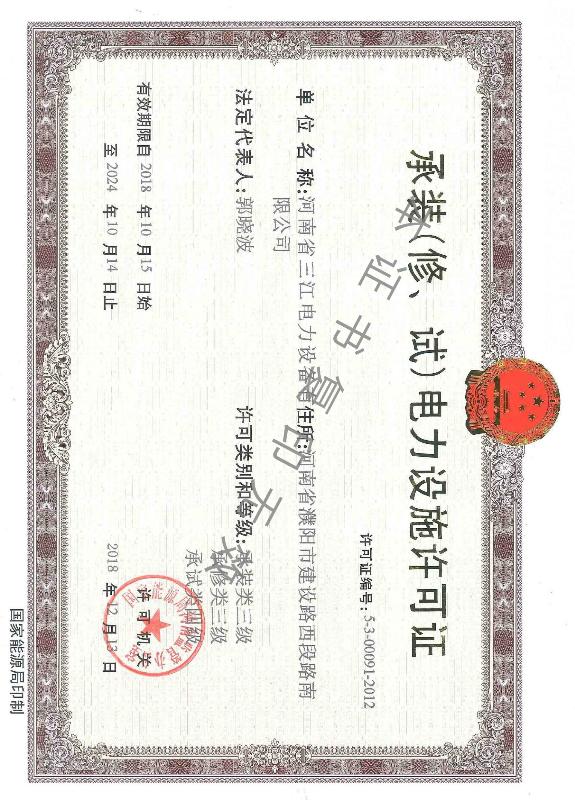 承装(修、试)电力设施许可证
许可证编号:5-3-00091-2012
单位名称:河南省三江电力设备有
限公司
住所:河南省濮阳市建设路西段路南
法定代表人:郭晓波
许可类别和等级:承装类三级
承修类三级
承试类四级
有效期限自 2018 年 10 月 15 日始
至 2024 年 10 月 14 日止
许可机关
2018 年 12 月 13 日
本证书复印无效
国家能源局印制